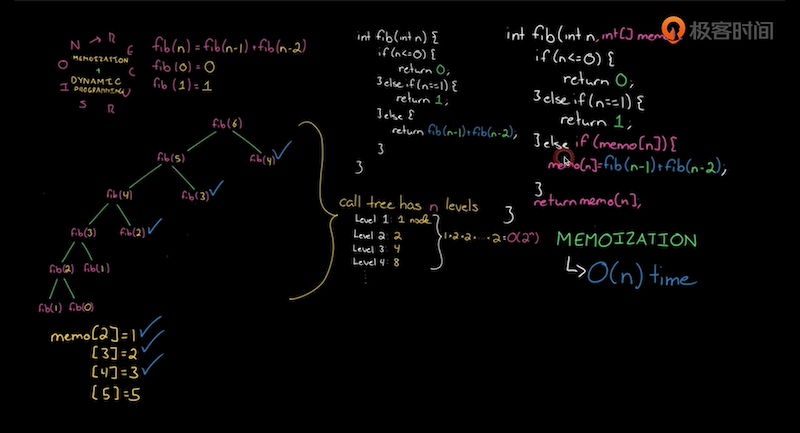 N → R E C U R S I O
MEMOIZATION
+
DYNAMIC
PROGRAMMING
fib(n)=fib(n-1)+fib(n-2)
fib(0)=0
fib(1)=1
fib(6)
fib(5) fib(4)
fib(4) fib(3)
fib(3) fib(2)
fib(2) fib(1)
fib(1) fib(0)
memo[2]=1
[3]=2
[4]=3
[5]=5
int fib(int n) {
if(n<=0) {
return 0;
}else if(n==1){
return 1;
}else {
return fib(n-1)+fib(n-2);
}
}
call tree has n levels
Level 1: 1 node
Level 2: 2
Level 3: 4
Level 4: 8
1·2·2·...·2=O(2^n)
极客时间
int fib(int n, int[] memo
if(n<=0) {
return 0;
}else if(n==1){
return 1;
}else if (memo[n]){
memo[n]=fib(n-1)+fib(n-2);
}
return memo[n];
}
MEMOIZATION
↳ O(n) time